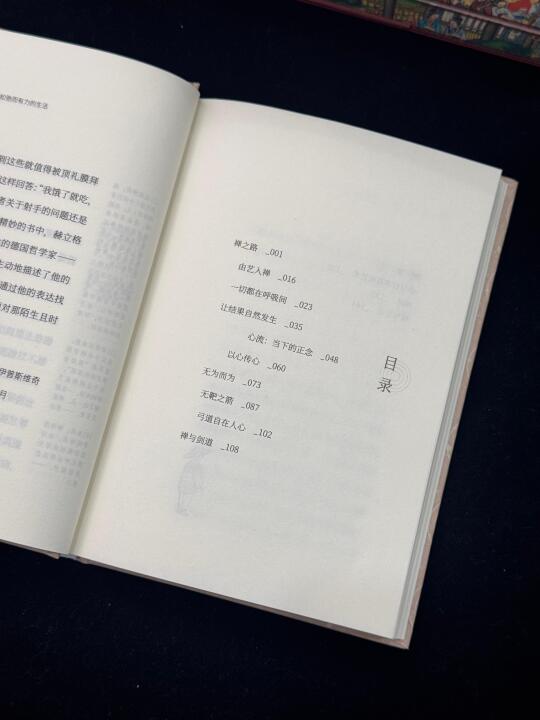 和弛而有力的生活
到这些就值得被顶礼膜拜
这样回答：“我饿了就吃，
者关于射手的问题还是
精妙的书中，赫立格
的德国哲学家——
生动地描述了他的
通过他的表达找
对那陌生且时
伊普斯维奇
月
目录
禅之路 _001
由艺入禅 _016
一切都在呼吸间 _023
让结果自然发生 _035
心流：当下的正念 _048
以心传心 _060
无为而为 _073
无靶之箭 _087
弓道自在人心 _102
禅与剑道 _108